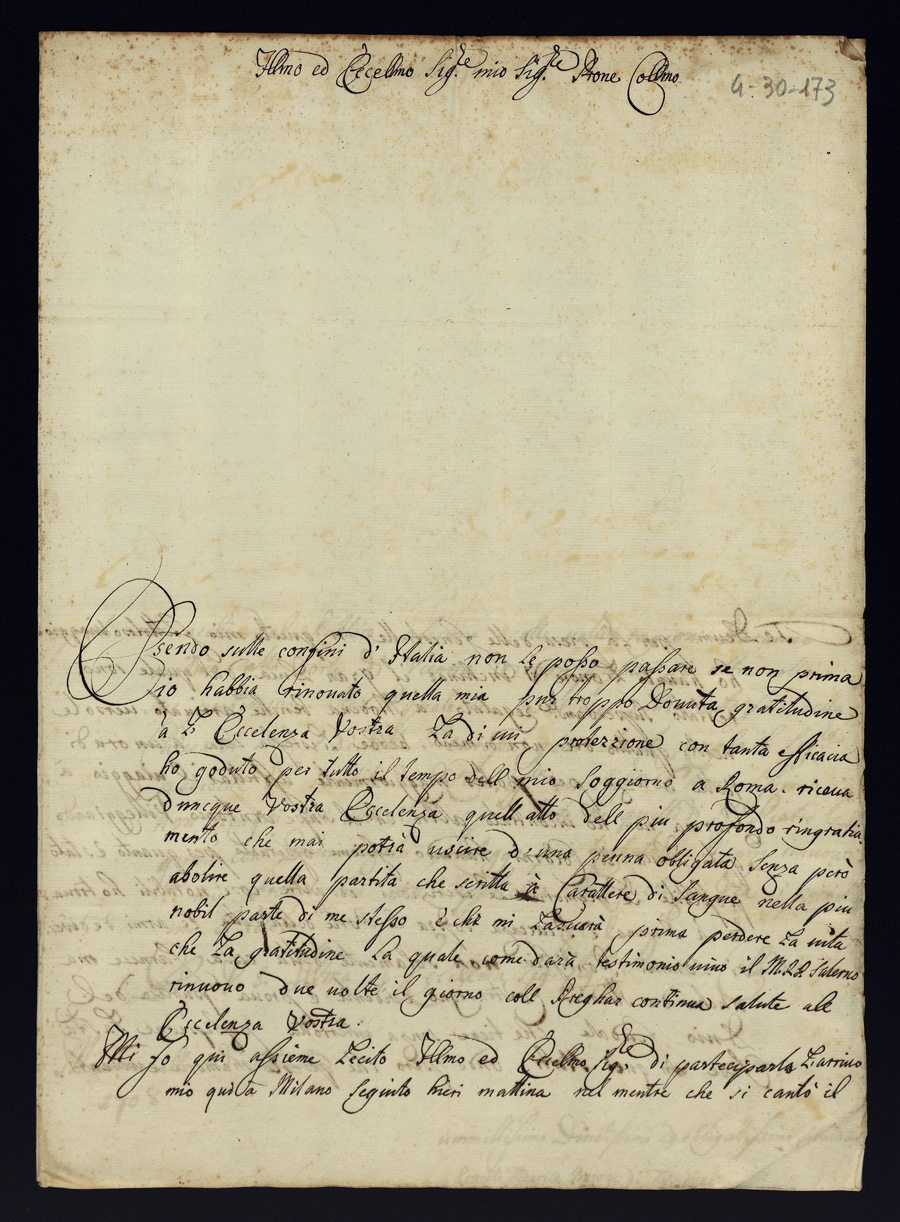 Illmo ed Eccellmo Sig.re mio Sig.re Prone Collmo
4-30-173
Essendo sulle confini d' Italia non le posso passare se non prima
io habbia rinouato quella mia pur troppo Douuta gratitudine
à L' Eccelenza Vostra La di cui protezzione con tanta efficacia
ho goduto per tutto il tempo dell mio Soggiorno a Roma. riceua
duncque Vostra Eccelenza quell atto dell piu profondo ringratia
mento che mai potrà uscire d'una penna obligata Senza però
abolire quella partita che scritta à Carattere di Sangue nella piu
nobil parte di me stesso è che mi Lascierà prima perdere La uita
che La gratitudine La quale come darà testimonio uiuo il Salerno
rinuouo due uolte il giorno coll Preghar continua salute all
Eccelenza Vostra.
Mi fo qui assieme Lecito Illmo ed Eccellmo Sig.re di partecipарla L'arriuo
mio qui à Milano Seguito hieri mattina nel mentre che si cantò il